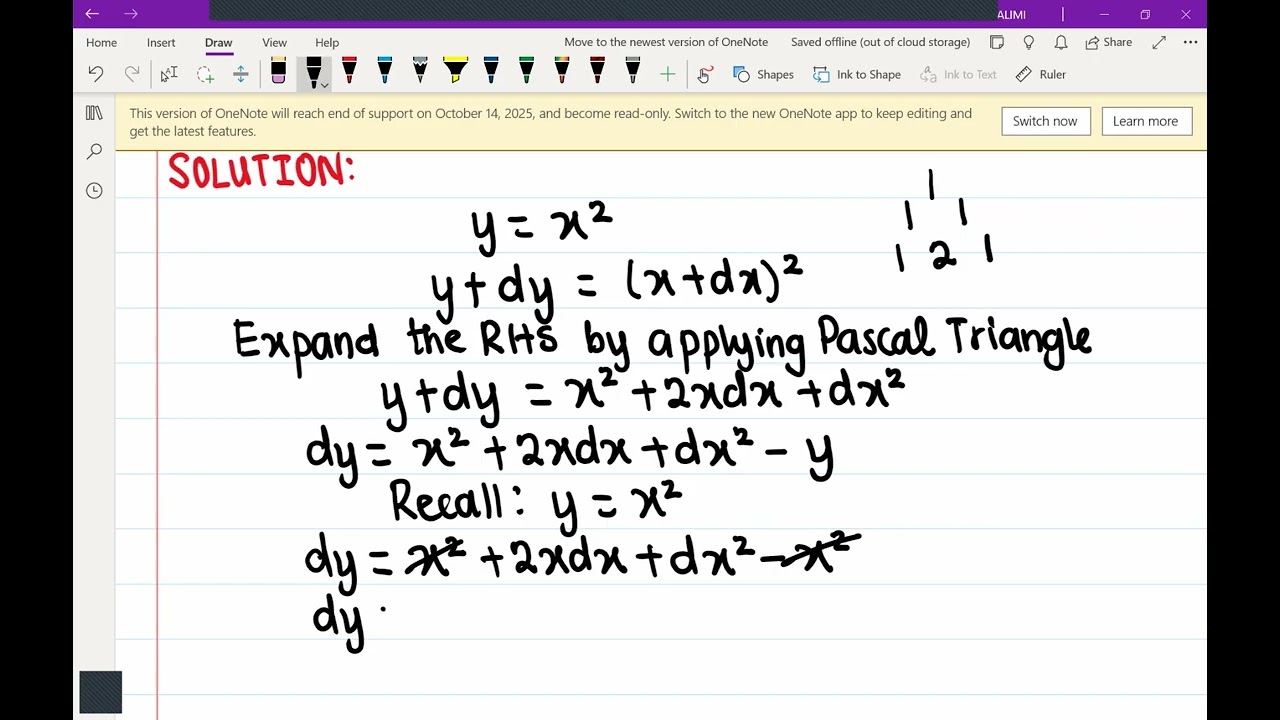 ALIMI
Home Insert Draw View Help Move to the newest version of OneNote Saved offline (out of cloud storage) Share
Shapes Ink to Shape Ink to Text Ruler
This version of OneNote will reach end of support on October 14, 2025, and become read-only. Switch to the new OneNote app to keep editing and
get the latest features.
Switch now Learn more
SOLUTION:
1
1 1
1 2 1
y = x²
y + dy = (x + dx)²
Expand the RHS by applying Pascal Triangle
y + dy = x² + 2xdx + dx²
dy = x² + 2xdx + dx² - y
Recall: y = x²
dy = x² + 2xdx + dx² - x²
dy